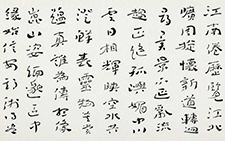 江南倦歷覽江北
曠周旋懷新道轉迥
尋異景不延亂流
趨正絕孤嶼媚中川
雲日相輝映空水共
澄鮮表靈物莫賞
蘊真誰為傳想像
崑山姿緬邈區中
緣始信安期術得盡